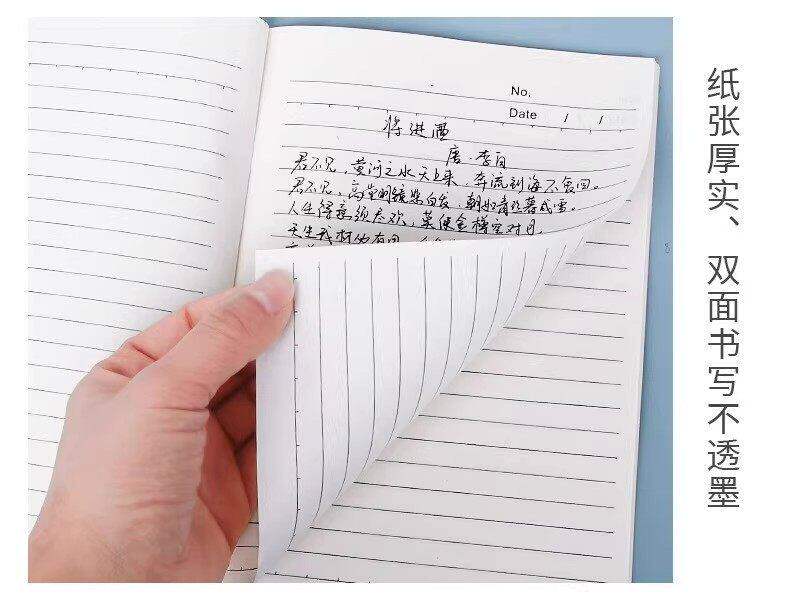 No.
Date / /
将进酒
唐·李白
君不见,黄河之水天上来,奔流到海不复回。
君不见,高堂明镜悲白发,朝如青丝暮成雪。
人生得意须尽欢,莫使金樽空对月,
天生我材必有用
纸张厚实、双面书写不透墨